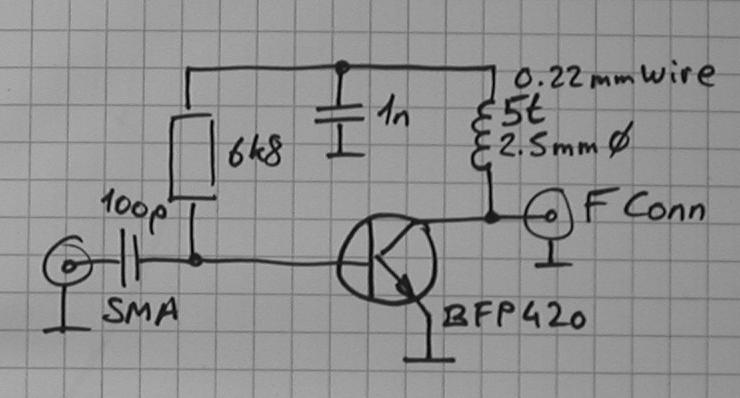 0.22mm wire
5t
1n
2.5mm Ø
6k8
100p
F Conn
SMA
BFP420